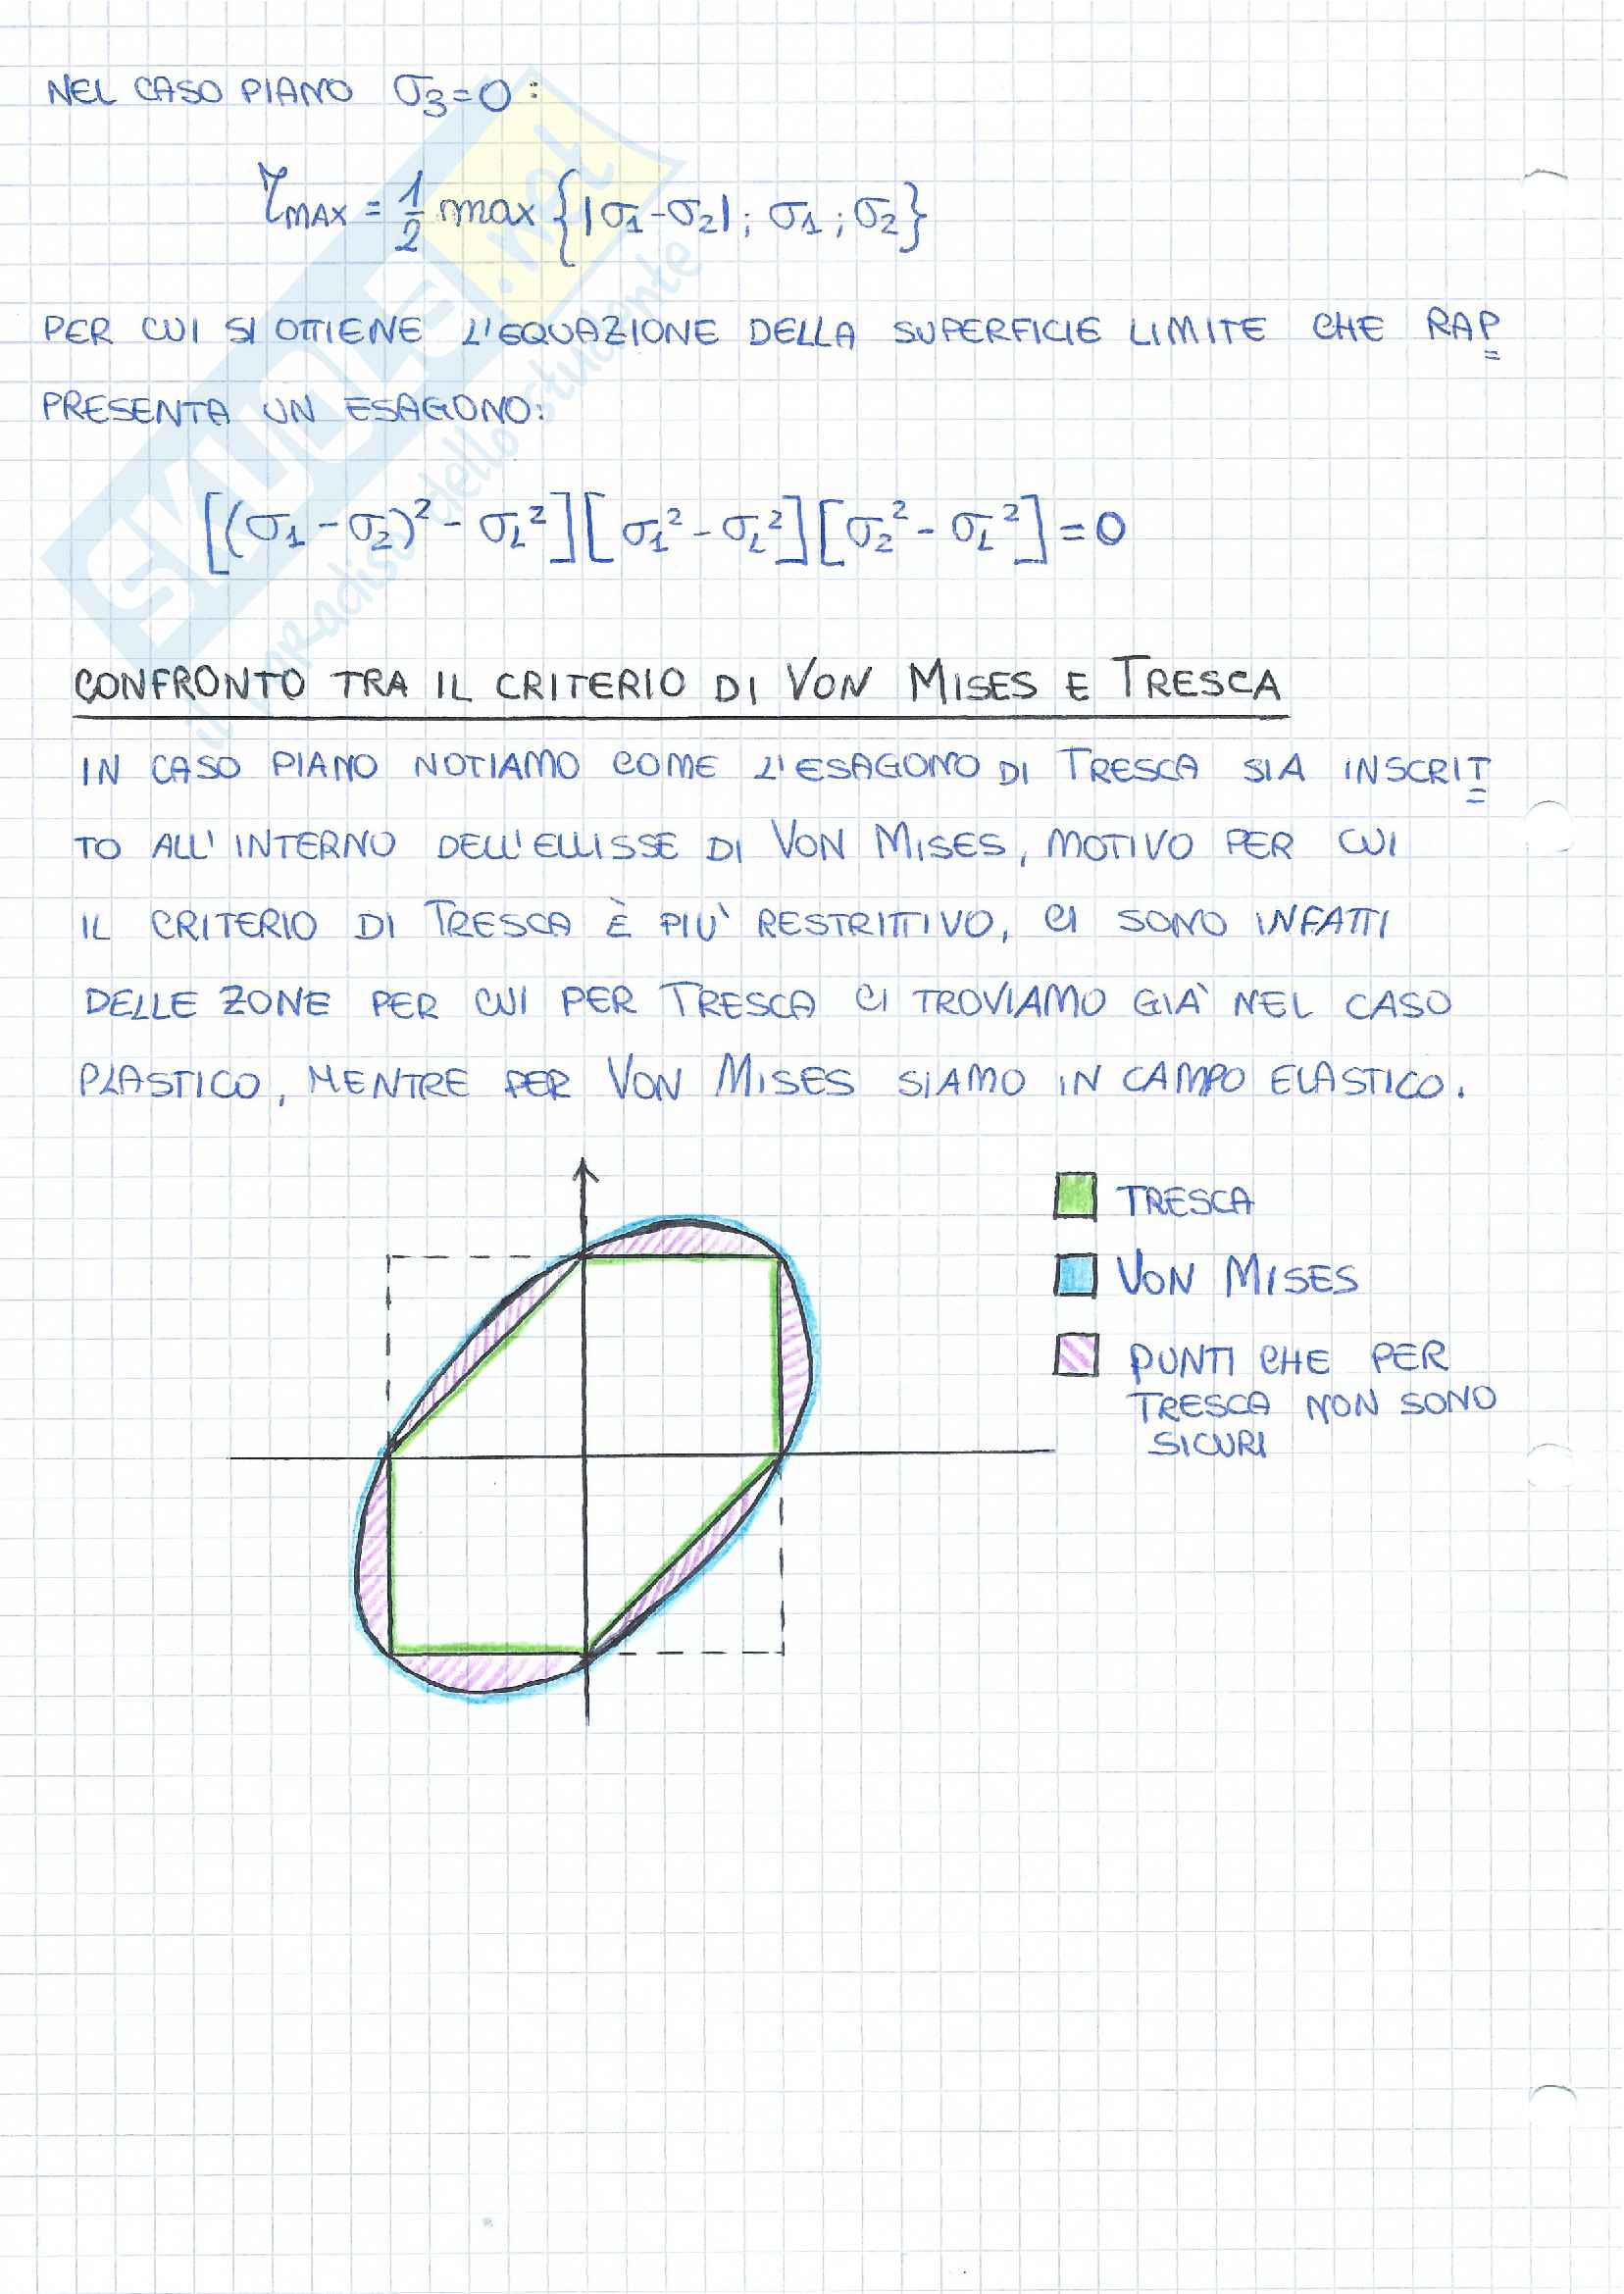 NEL CASO PIANO σ3=0:
τMAX = 1/2 max {|σ1-σ2|; σ1; σ2}
PER CUI SI OTTIENE L'EQUAZIONE DELLA SUPERFICIE LIMITE CHE RAP
PRESENTA UN ESAGONO:
[(σ1-σ2)²-σL²][σ1²-σL²][σ2²-σL²]=0
CONFRONTO TRA IL CRITERIO DI VON MISES E TRESCA
IN CASO PIANO NOTIAMO COME L'ESAGONO DI TRESCA SIA INSCRIT
TO ALL'INTERNO DELL'ELLISSE DI VON MISES, MOTIVO PER CUI
IL CRITERIO DI TRESCA È PIU' RESTRITTIVO, CI SONO INFATTI
DELLE ZONE PER CUI PER TRESCA CI TROVIAMO GIÀ NEL CASO
PLASTICO, MENTRE PER VON MISES SIAMO IN CAMPO ELASTICO.
TRESCA
VON MISES
PUNTI CHE PER
TRESCA NON SONO
SICURI
SKUOLA.net
il paradiso dello studente